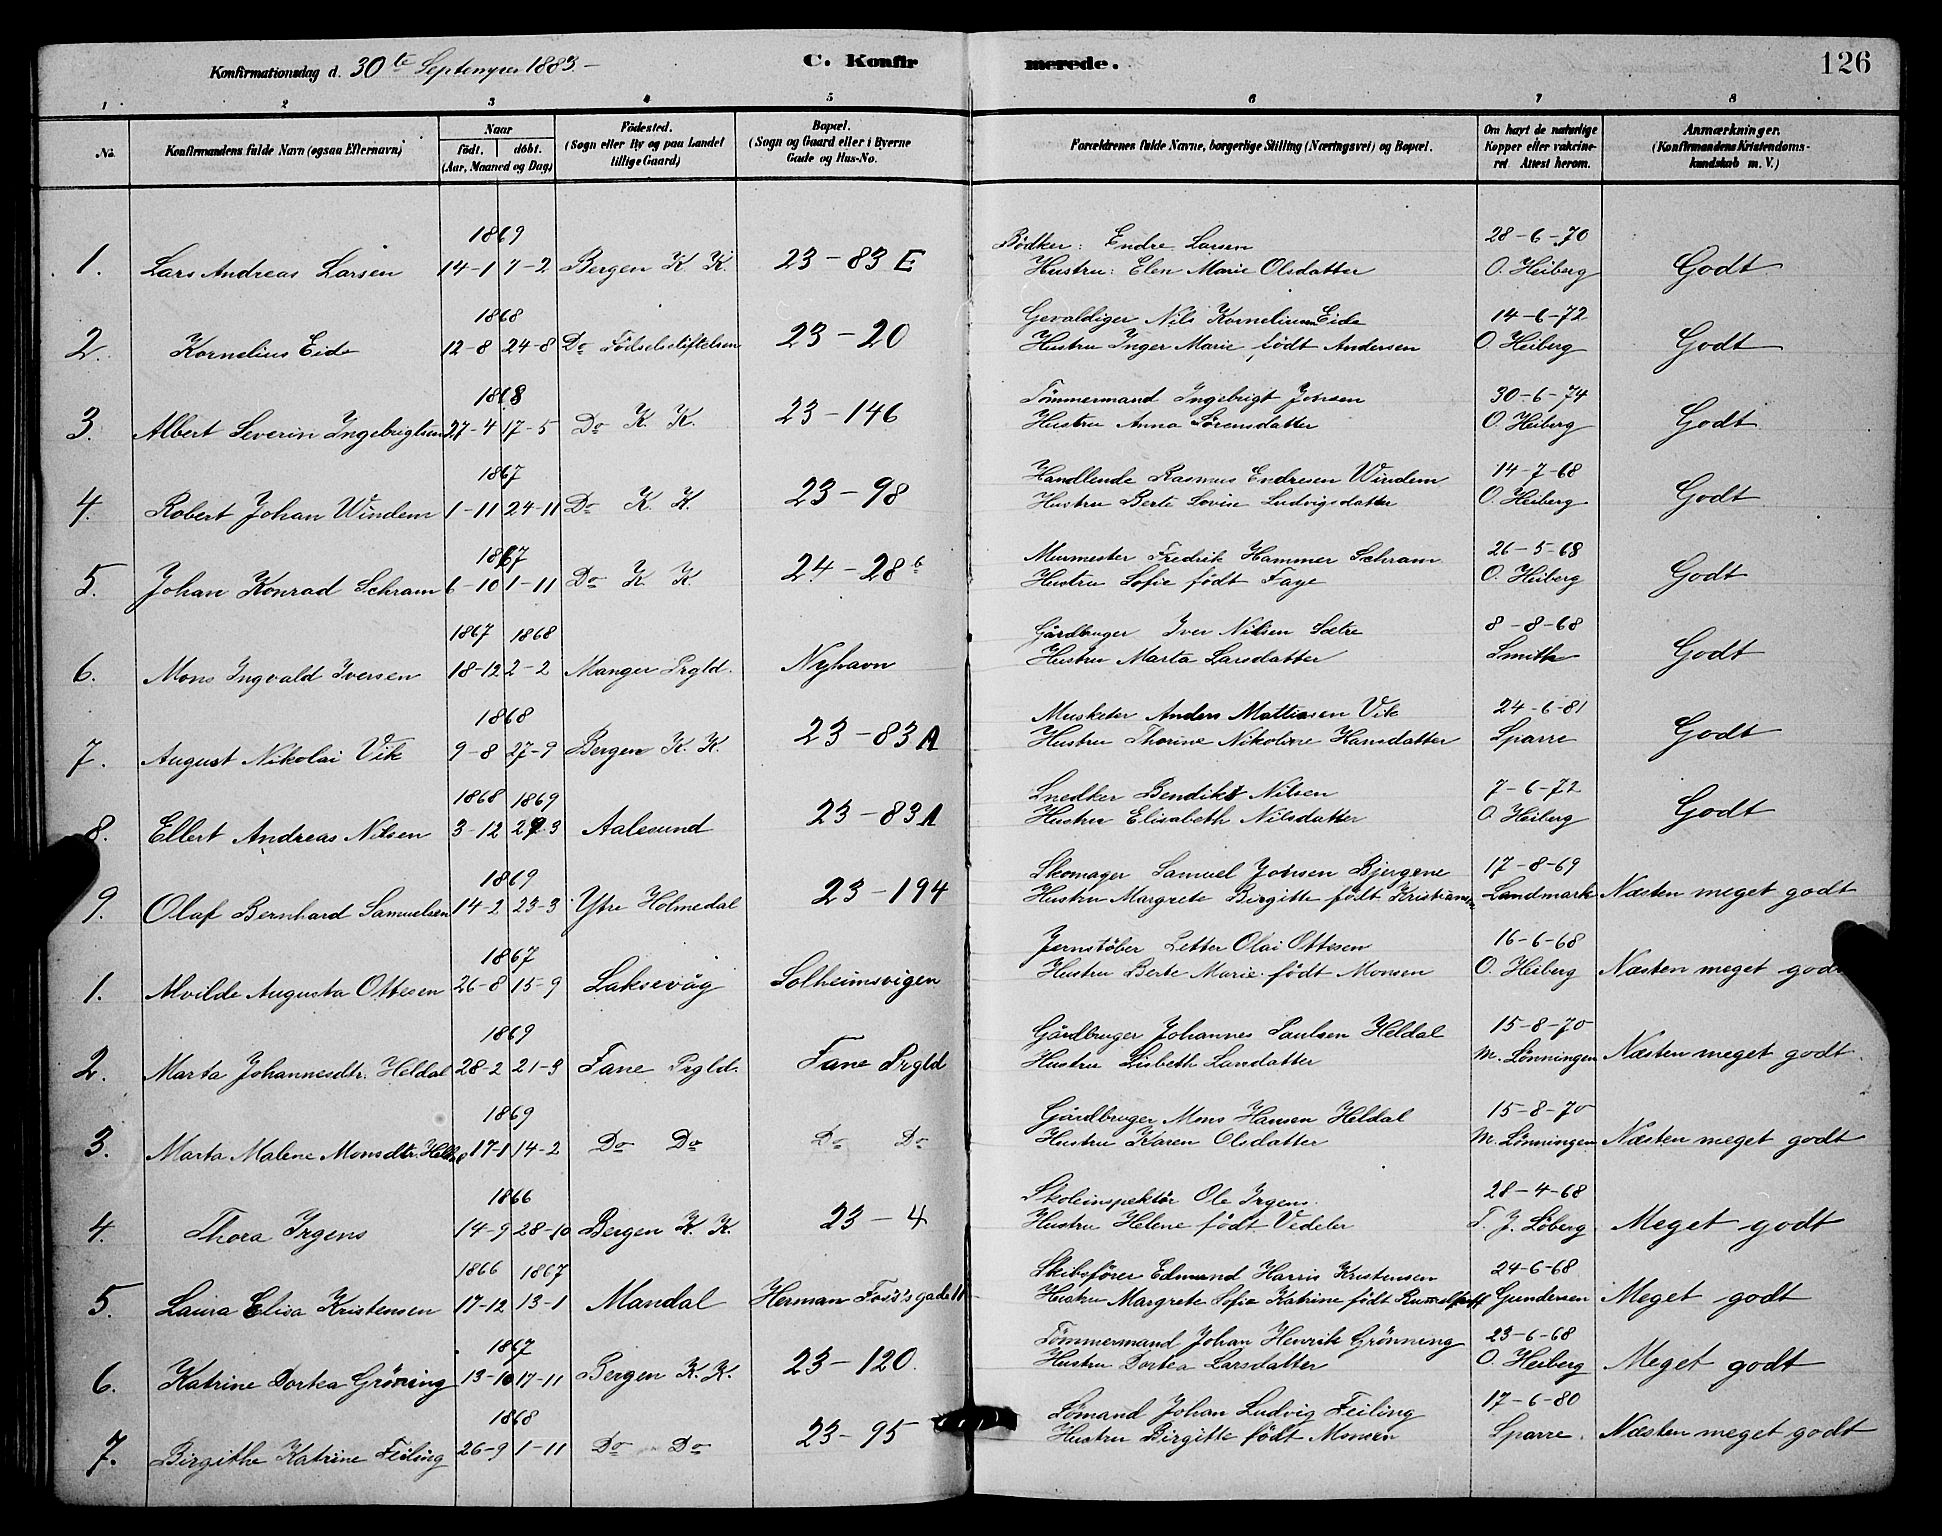 Konfirmationsdag d. 30te Septemper 1883. —
C. Konfirmerede.
126
1 2 3 4 5 6 7 8
No. Konfirmandens fulde Navn (ogsaa Efternavn) Naar født. døbt. (Aar, Maaned og Dag) Fødested. (Sogn eller By og paa Landet tillige Gaard) Bopæl. (Sogn og Gaard eller i Byerne Gade og Hus-No. Forældrenes fulde Navne, borgerlige Stilling (Næringsvei) og Bopæl. Om havt de naturlige Kopper eller vakcineret Attest herom. Anmærkninger. (Konfirmandens Kristendomskundskab m. V.)
1869 Bødker: Endre Larsen 28-6-70
1. Lars Andreas Larsen 14-1 7-2 Bergen K K. 23-83 E Hustru: Elen Marie Olsdatter O. Heiberg Godt
1868 Gevaldiger Nils Kornelius Eide 14-6-72
2. Kornelius Eide 12-8 24-8 Do Fødselsstiftelsen 23-20 Hustru Inger Marie, født Andersen O. Heiberg Godt
1868 Tømmermand Ingebrigt Jonsen 30-6-74
3. Albert Severin Ingebrigtsen 27-4 17-5 Do K. K. 23-146 Hustru Anna Sørensdatter O. Heiberg Godt
1867 Handlende Rasmus Endresen Windem 14-7-68
4. Robert Johan Windem 1-11 24-11 Do K. K. 23-98 Hustru Berte Lovise Ludvigsdatter O. Heiberg Godt
1867 Murmester Fredrik Hammer Schram 26-5-68
5. Johan Konrad Schram 6-10 1-11 Do K K. 24-28b Hustru Sofie født Faye O. Heiberg Godt
1867 1868 Gårdbruger Iver Nilsen Sætre 8-8-68
6. Mons Ingvald Iversen 18-12 2-2 Manger Prgld. Nyhavn Hustru Marta Larsdatter Smith Godt
1868 Musketer Anders Mattiasen Vik 24-6-81
7. August Nikolai Vik 9-8 27-9 Bergen K. K. 23-83 A Hustru Thorine Nikoline Hansdatter Sparre Godt
1868 1869 Snedker Bendikt Nilsen 7-6-72
8. Ellert Andreas Nilsen 3-12 29-3 Aalesund 23-83 A Hustru Elisabeth Nilsdatter O. Heiberg Godt
1869 Skomager Samuel Jonsen Bjergene 17-8-69
9. Olaf Bernhard Samuelsen 14-2 23-3 Ytre Holmedal 23-194 Hustru Margrete Birgitte født Kristians. Landmark Næsten meget godt
1867 Jernstøber Petter Olai Ottesen 16-6-68
1. Alvilde Augusta Ottesen 26-8 15-9 Laksevåg Solheimsvigen Hustru Berte Marie født Monsen O. Heiberg Næsten meget godt
1869 Gårdbruger Johannes Paulsen Heldal 15-8-70
2. Marta Johannesdtr. Heldal 28-2 21-3 Fane Prgld. Fane Prgld Hustru Lisbeth Larsdatter M. Lønningen Næsten meget godt
1869 Gårdbruger Mons Hansen Heldal 15-8-70
3. Marta Malene Monsdtr. Heldal 17-1 14-2 Do Do Do Do Hustru Karen Olsdatter M. Lønningen Næsten meget godt
1866 Skoleinspektør Ole Irgens 28-4-68
4. Thora Irgens 14-9 28-10 Bergen K. K. 23-4 Hustru Helene født Vedeler T. J. Løberg Meget godt
1866 1867 Skibsfører Edmund Harris Kristensen 24-6-68
5. Laura Elisa Kristensen 17-12 13-1 Mandal Herman Foss's gade 11 Hustru Margrete Sofie Katrine født Gundersen Meget godt
1867 Tømmermand Johan Henrik Grønning 23-6-68
6. Katrine Dortea Grøning 13-10 17-11 Bergen K. K. 23-120. Hustru Dortea Larsdatter O. Heiberg Meget godt
1868 Sømand Johan Ludvig Feiling 17-6-80
7. Birgithe Katrine Feiling 26-9 1-11 Do Do 23-95 Hustru Birgitte født Monsen Sparre. Næsten meget godt